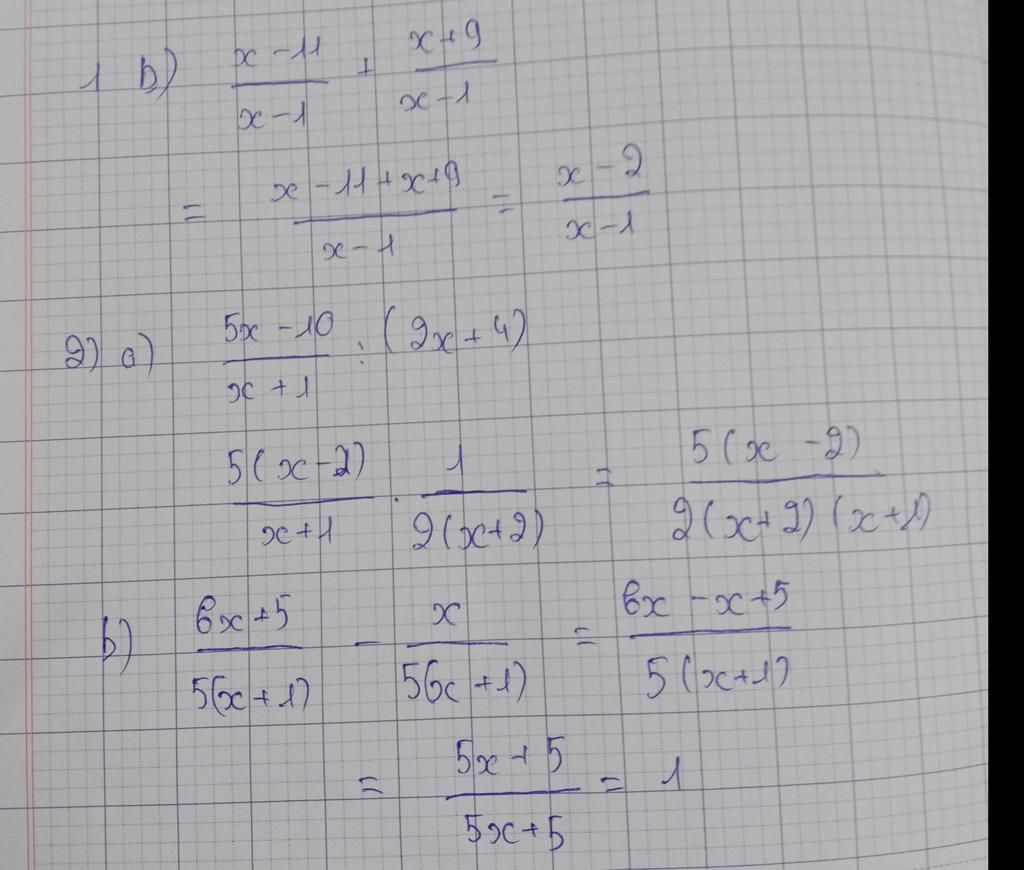 1 b) \frac{x-11}{x-1} + \frac{x+9}{x-1}
= \frac{x-11+x+9}{x-1} = \frac{x-2}{x-1}
2) a) \frac{5x-10}{x+1} : (2x+4)
\frac{5(x-2)}{x+1} . \frac{1}{2(x+2)} = \frac{5(x-2)}{2(x+2)(x+1)}
b) \frac{6x+5}{5(x+1)} - \frac{x}{5(x+1)} = \frac{6x-x+5}{5(x+1)}
= \frac{5x+5}{5x+5} = 1